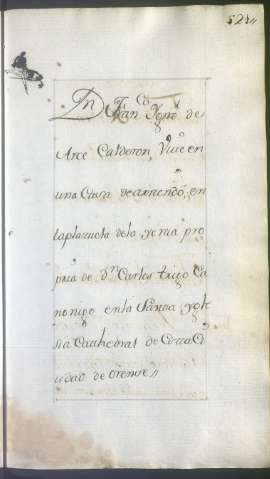 524
Dn Franco Ygno de
Arce Calderon, Vive en
una Casa de arriendo, en
la plazuela de la yerva pro
pria de Dn Carlos trigo Ca
nonigo en la Santa ygle
sia Cathedral de esta Ci
udad de orense